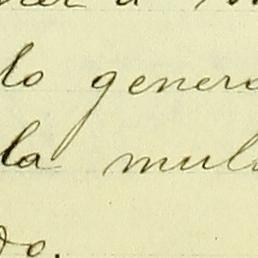 lo genera
la mul
do.